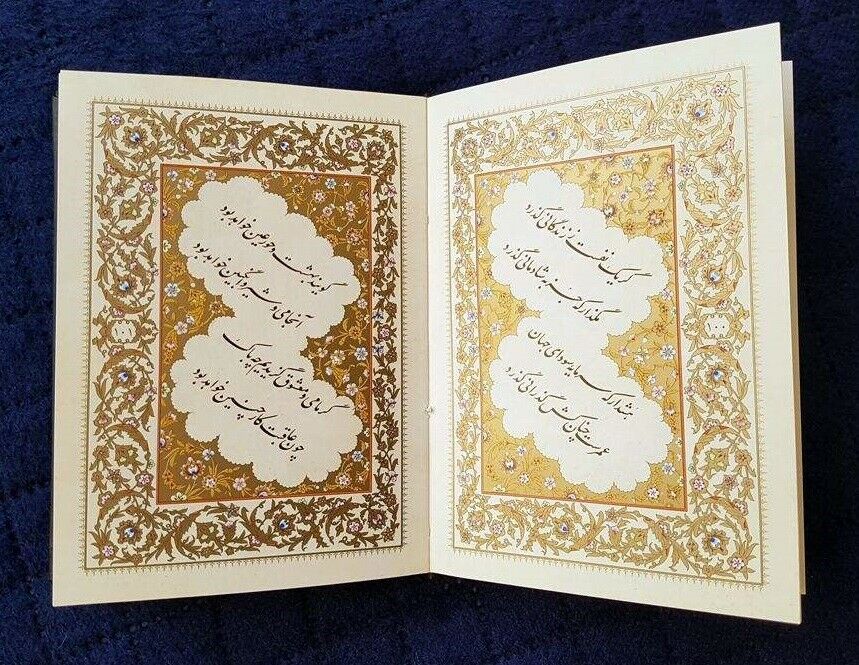 گر یک نفست ز زندگانی گذرد
مگذار که جز به شادمانی گذرد
هشدار که سرمایه سودای جهان
عمرست چنان کش گذرانی گذرد
۱۰۰
گویند بهشت و حور عین خواهد بود
آنجا می و شیر و انگبین خواهد بود
گر ما می و معشوق گزیدیم چه باک
چون عاقبت کار چنین خواهد بود